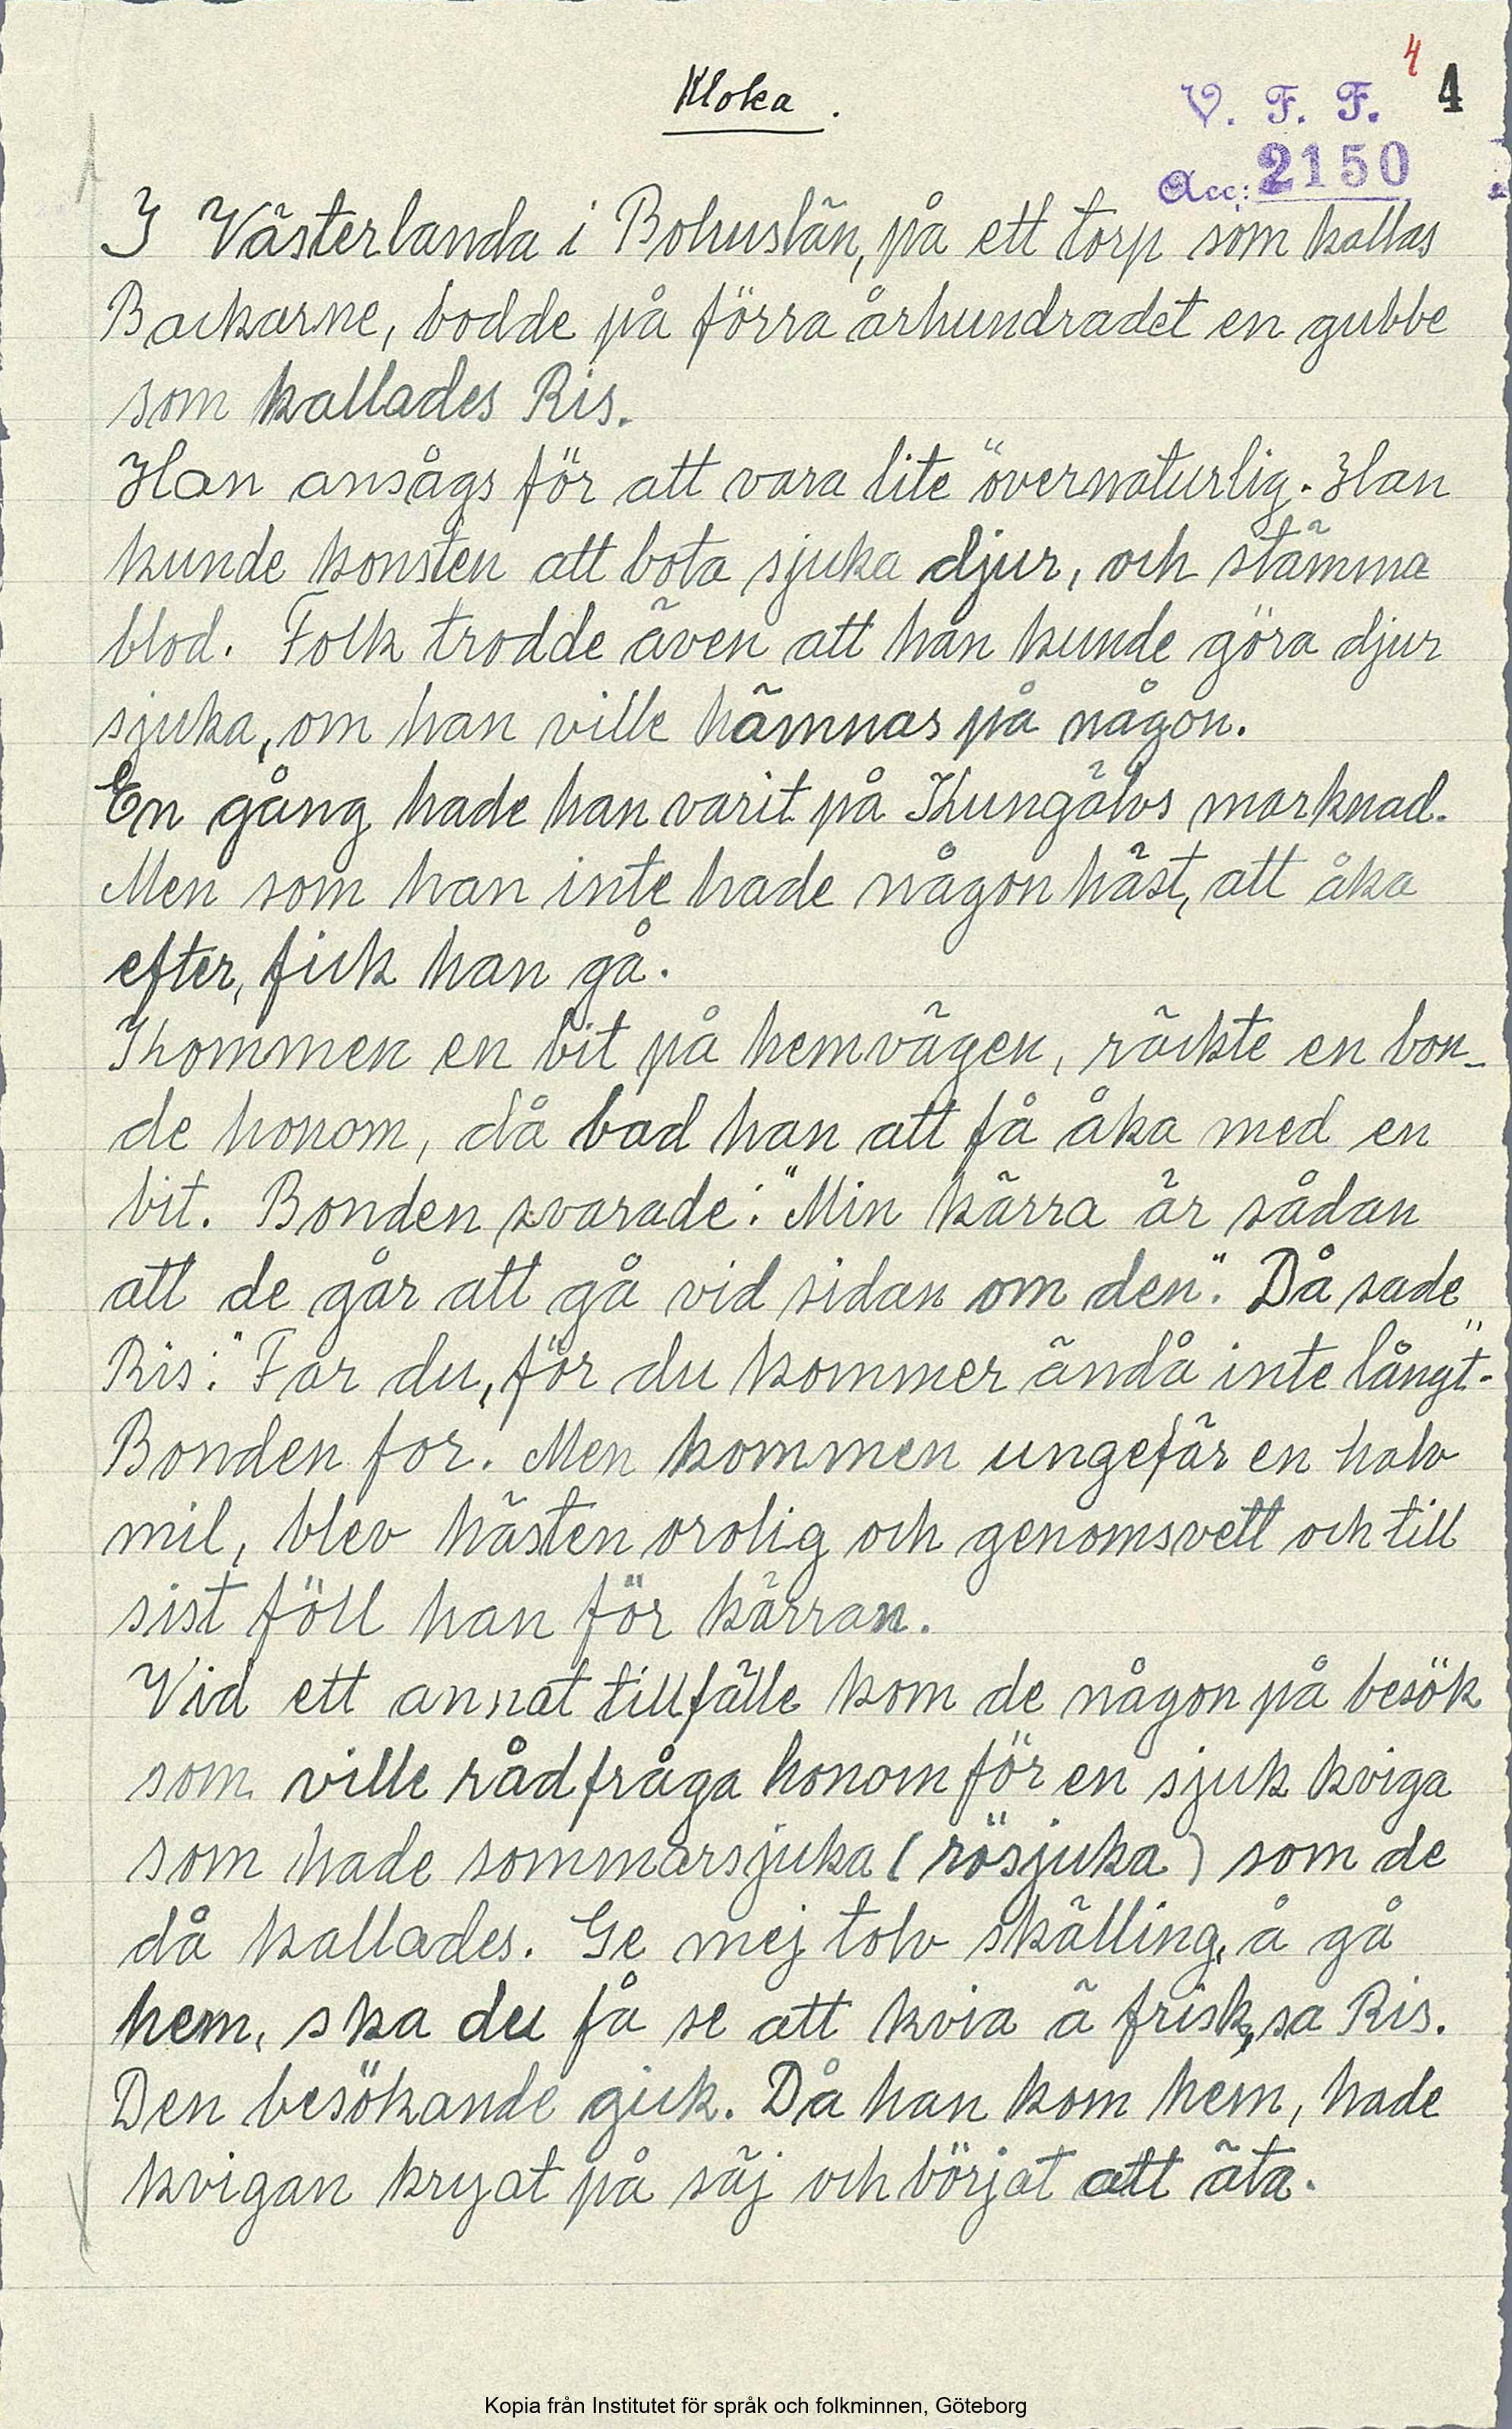 4
4
Kloka.
V. F. F.
Acc: 2150
I Västerlanda i Bohuslän, på ett torp som kallas
Backarne, bodde på förra århundradet en gubbe
som kallades Ris.
Han ansågs för att vara lite övernaturlig. Han
kunde konsten att bota sjuka djur, och stämma
blod. Folk trodde även att han kunde göra djur
sjuka, om han ville hämnas på någon.
En gång hade han varit på Kungälvs marknad.
Men som han inte hade någon häst, att åka
efter, fick han gå.
Kommen en bit på hemvägen, räckte en bon-
de honom, då bad han att få åka med en
bit. Bonden svarade: "Min kärra är sådan
att de går att gå vid sidan om den". Då sade
Ris: "Far du, för du kommer ändå inte långt".
Bonden for. Men kommen ungefär en halv
mil, blev hästen orolig och genomsvett och till
sist föll han för kärran.
Vid ett annat tillfälle kom de någon på besök
som ville rådfråga honom för en sjuk kviga
som hade sommarsjuka (rösjuka) som de
då kallades. Ge mej tolv skälling, å gå
hem, ska du få se att kvia ä frisk, sa Ris.
Den besökande gick. Då han kom hem, hade
kvigan kryat på säj och börjat att äta.
Kopia från Institutet för språk och folkminnen, Göteborg